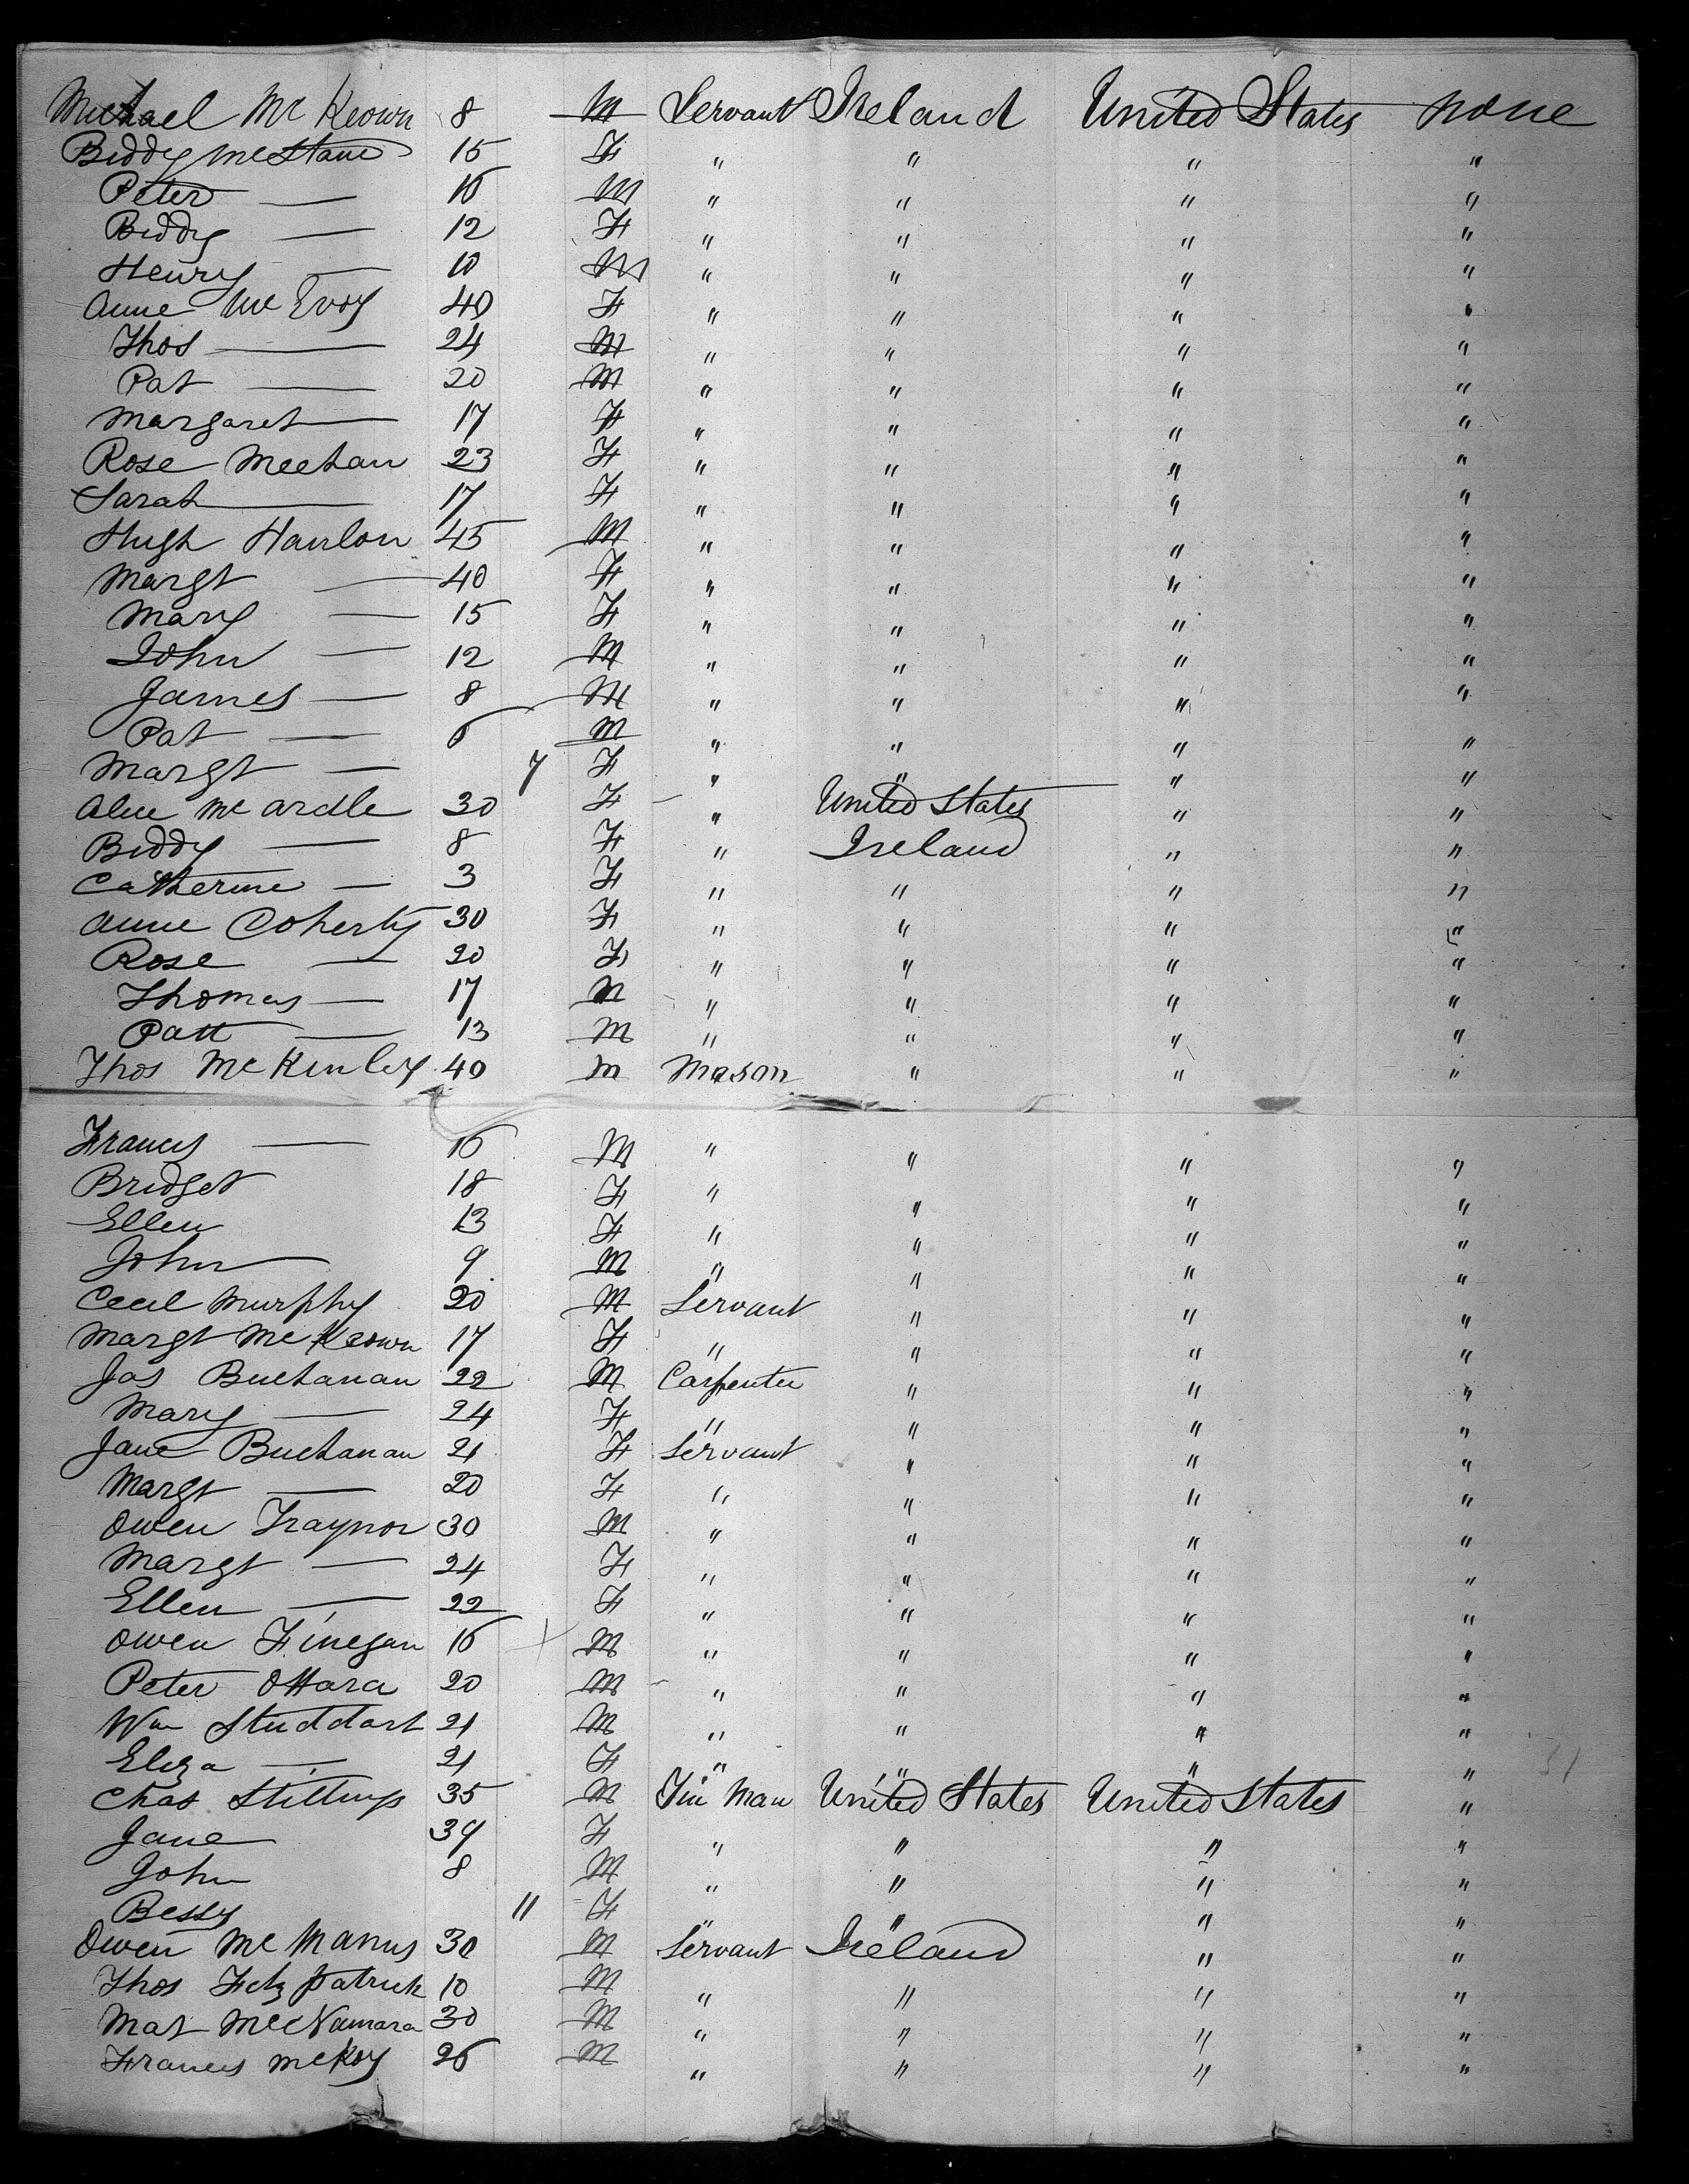 Michael McKeown 8 M Servant Ireland United States None
Biddy McStane 15 F " " " "
Peter — 16 M " " " "
Biddy — 12 F " " " "
Henry — 10 M " " " "
Anne McEvoy 40 F " " " "
Thos — 24 M " " " "
Pat — 20 M " " " "
Margaret — 17 F " " " "
Rose Meehan 23 F " " " "
Sarah — 17 F " " " "
Hugh Hanlon 45 M " " " "
Margt — 40 F " " " "
Mary — 15 F " " " "
John — 12 M " " " "
James — 8 M " " " "
Pat — 6 M " " " "
Margt — 7 F " " " "
Alice McArdle 30 F " United States " "
Biddy — 8 F " Ireland " "
Catherine — 3 F " " " "
Anne Coherty 30 F " " " "
Rose — 20 F " " " "
Thomas — 17 M " " " "
Patt — 13 M " " " "
Thos McKinley 40 M Mason " " "
Francis — 16 M " " " "
Bridget 18 F " " " "
Ellen 13 F " " " "
John — 9 M " " " "
Cecil Murphy 20 M Servant " " "
Margt McKeown 17 F " " " "
Jas Buchanan 22 M Carpenter " " "
Mary — 24 F " " " "
Jane Buchanan 21 F Servant " " "
Margt — 20 F " " " "
Owen Traynor 30 M " " " "
Margt — 24 F " " " "
Ellen — 22 F " " " "
Owen Finegan 16 M " " " "
Peter OHara 20 M " " " "
Wm Studdart 21 M " " " "
Eliza — 21 F " " " "
Chas Stillings 35 M Tin Man United States United States "
Jane 39 F " " " "
John 8 M " " " "
Bessy 11 F " " " "
Owen McManus 30 M Servant Ireland " "
Thos Fitzpatrick 10 M " " " "
Mat McNamara 30 M " " " "
Francis McKoy 26 M " " " "